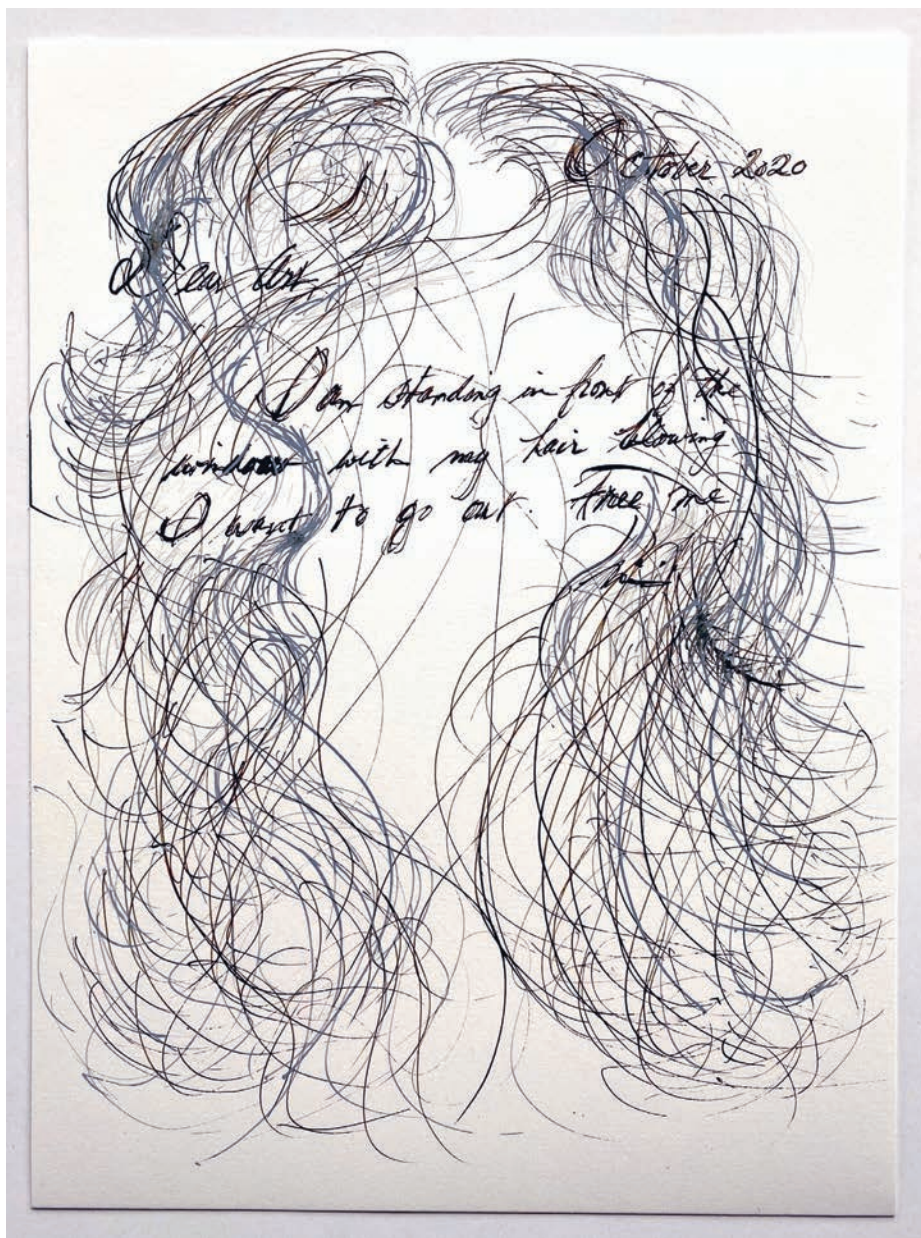 October 2020
Dear Art
I am standing in front of the
window with my hair blowing
I want to go out. Free me